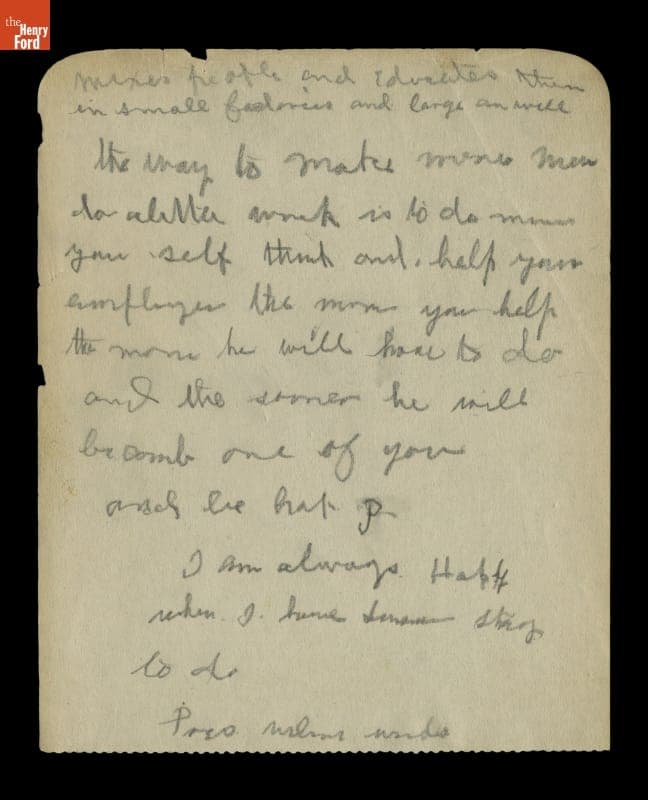 the
Henry
Ford
mixes people and Educates them
in small factories and large as well
the way to make more men
do a better work is to do more
your self think and help your
employer the more you help
the more he will have to do
and the sooner he will
becomb one of you
and be hap p
I am always Happy
when I have some
to do